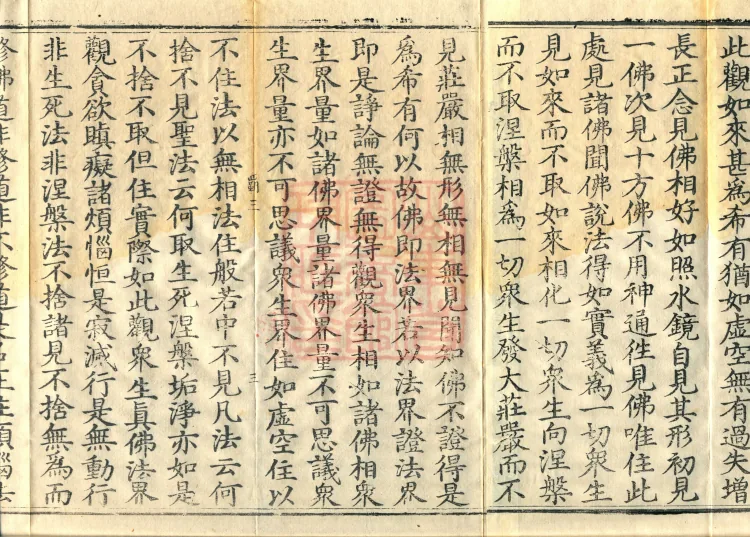 此觀如來甚為希有猶如虛空無有過失增
長正念見佛相好如照水鏡自見其形初見
一佛次見十方佛不用神通徃見佛唯住此
處見諸佛聞佛說法得如實義為一切眾生
見如來而不取如來相化一切眾生向涅槃
而不取涅槃相爲一切眾生發大莊嚴而不
見莊嚴相無形無相無見聞知佛不證得是
爲希有何以故佛即法界若以法界證法界
即是諍論無證無得觀眾生相如諸佛相眾
生界量如諸佛界量諸佛界量不可思議眾
生界量亦不可思議眾生界住如虛空住以
不住法以無相法住般若中不見凡法云何
捨不見聖法云何取生死涅槃垢淨亦如是
不捨不取但住實際如此觀眾生真佛法界
觀貪欲瞋癡諸煩惱恒是寂滅行是無動行
非生死法非涅槃法不捨諸見不捨無為而
修佛道非修道非不修道是名正住煩惱法
三